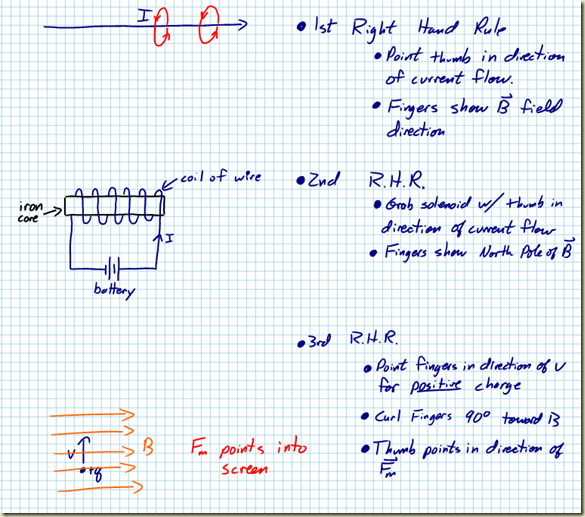 I
• 1st Right Hand Rule
• Point thumb in direction
of current flow.
• Fingers show B field
direction
coil of wire
iron
core
I
battery
• 2nd R.H.R.
• Grab solenoid w/ thumb in
direction of current flow
• Fingers show North Pole of B
• 3rd R.H.R.
• Point fingers in direction of v
for positive charge
• Curl Fingers 90° toward B
• Thumb points in direction of
Fm
v
B
+q
Fm points into
screen